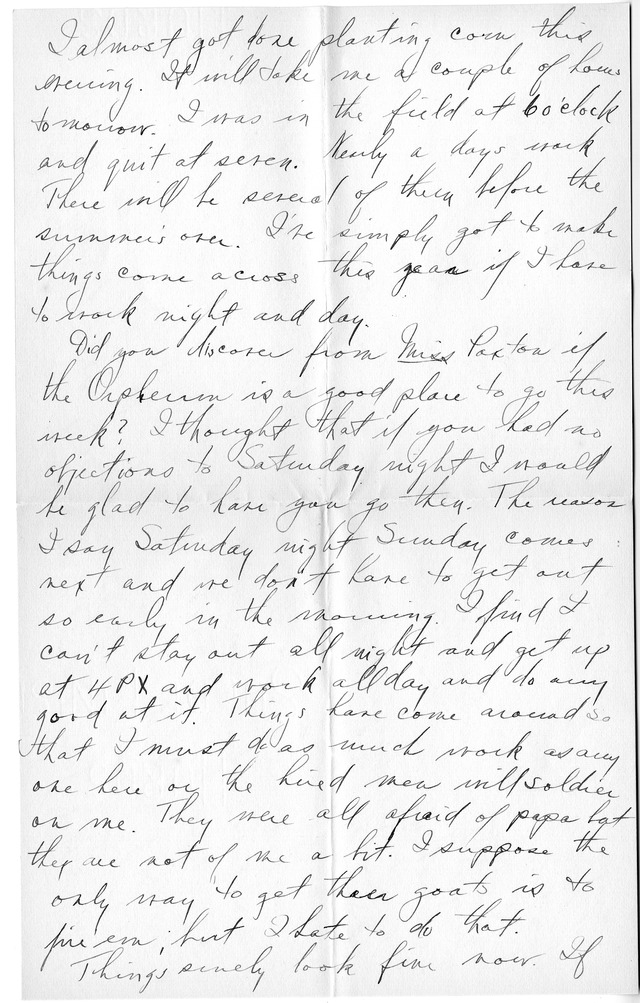 I almost got done planting corn this
evening. It will take me a couple of hours
tomorrow. I was in the field at 6 o'clock
and quit at seven. Nearly a days work
There will be several of them before the
summer's over. I've simply got to make
things come across this year if I have
to work night and day.
Did you discover from Miss Paxton if
the Orpheum is a good place to go this
week? I thought that if you had no
objections to Saturday night I would
be glad to have you go then. The reason
I say Saturday night Sunday comes
next and we don't have to get out
so early in the morning. I find I
can't stay out all night and get up
at 4 and work all day and do any
good at it. Things have come around so
that I must do as much work as any
one here or the hired men will soldier
on me. They were all afraid of papa but
they are not of me a bit. I suppose the
only way to get their goats is to
fire em, but I hate to do that.
Things surely look fine now. If